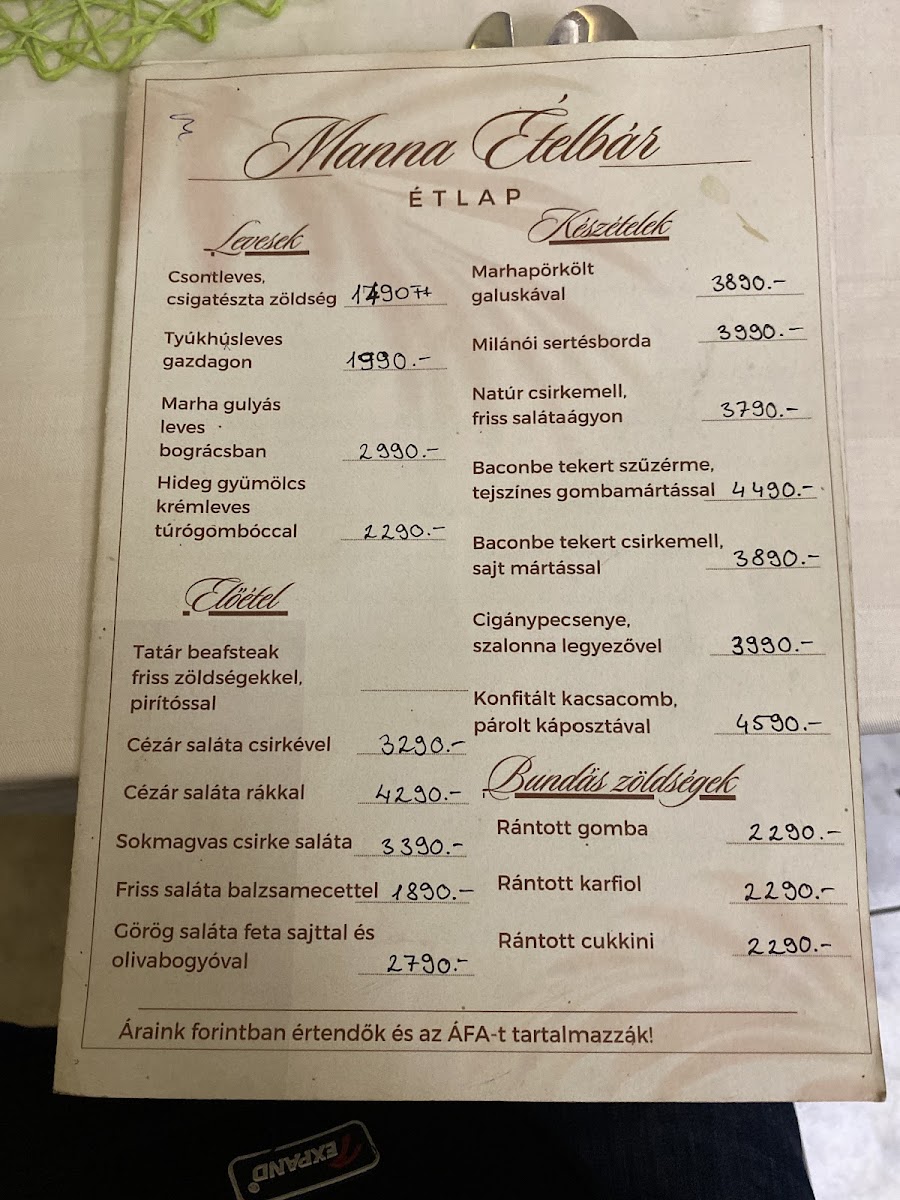 Manna Ételbár
ÉTLAP
Levesek
Csontleves,
csigatészta zöldség 1790Ft
Tyúkhúsleves
gazdagon 1990.-
Marha gulyás
leves
bográcsban 2990.-
Hideg gyümölcs
krémleves
túrógombóccal 2290.-
Előétel
Tatár beafsteak
friss zöldségekkel,
pirítóssal
Cézár saláta csirkével 3290.-
Cézár saláta rákkal 4290.-
Sokmagvas csirke saláta 3390.-
Friss saláta balzsamecettel 1890.-
Görög saláta feta sajttal és
olivabogyóval 2790.-
Készételek
Marhapörkölt
galuskával 3890.-
Milánói sertésborda 3990.-
Natúr csirkemell,
friss salátaágyon 3790.-
Baconbe tekert szűzérme,
tejszínes gombamártással 4490.-
Baconbe tekert csirkemell,
sajt mártással 3890.-
Cigánypecsenye,
szalonna legyezővel 3990.-
Konfitált kacsacomb,
párolt káposztával 4590.-
Bundás zöldségek
Rántott gomba 2290.-
Rántott karfiol 2290.-
Rántott cukkini 2290.-
Áraink forintban értendők és az ÁFA-t tartalmazzák!
EXPAND®